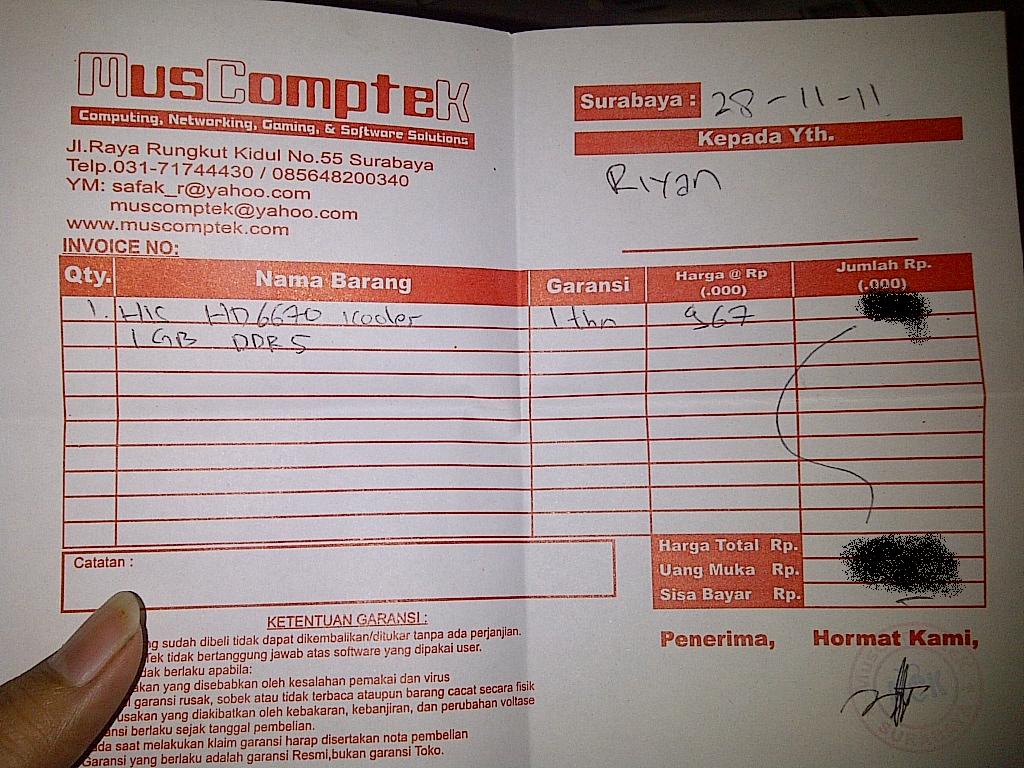 MusComptek
Computing, Networking, Gaming, & Software Solutions
Jl.Raya Rungkut Kidul No.55 Surabaya
Telp.031-71744430 / 085648200340
YM: safak_r@yahoo.com
muscomptek@yahoo.com
www.muscomptek.com
INVOICE NO:
Surabaya : 28-11-11
Kepada Yth.
Riyan
Qty. Nama Barang Garansi Harga @ Rp (.000) Jumlah Rp. (.000)
1. HIS HD6670 icooler 1 thn 967
1 GB DDR5
Harga Total Rp.
Uang Muka Rp.
Sisa Bayar Rp.
Catatan :
Penerima, Hormat Kami,
KETENTUAN GARANSI :
sudah dibeli tidak dapat dikembalikan/ditukar tanpa ada perjanjian.
tidak bertanggung jawab atas software yang dipakai user.
berlaku apabila:
yang disebabkan oleh kesalahan pemakai dan virus
garansi rusak, sobek atau tidak terbaca ataupun barang cacat secara fisik
yang diakibatkan oleh kebakaran, kebanjiran, dan perubahan voltase
berlaku sejak tanggal pembelian.
saat melakukan klaim garansi harap disertakan nota pembelian
Garansi yang berlaku adalah garansi Resmi,bukan garansi Toko.